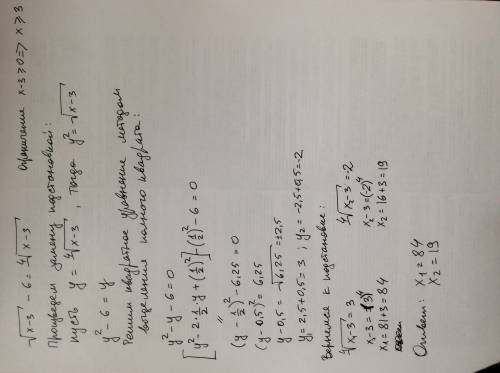 √x-3 - 6 = ⁴√x-3    Ограничение x-3≥0 => x≥3
Произведем замену подстановкой:
пусть y = ⁴√x-3, тогда y² = √x-3
y² - 6 = y
Решим квадратное уравнение методом
выделения полного квадрата:
y² - y - 6 = 0
[y² - 2·½·y + (½)²] - (½)² - 6 = 0
(y - ½)² - 6,25 = 0
(y - 0,5)² = 6,25
y - 0,5 = √6,25 = ±2,5
y₁ = 2,5 + 0,5 = 3 ; y₂ = -2,5 + 0,5 = -2
Вернемся к подстановке:
⁴√x₁-3 = 3    ⁴√x₂-3 = -2
x₁-3 = (3)⁴    x₂-3 = (-2)⁴
x₁ = 81+3 = 84    x₂ = 16+3 = 19
Ответ: x₁ = 84
x₂ = 19